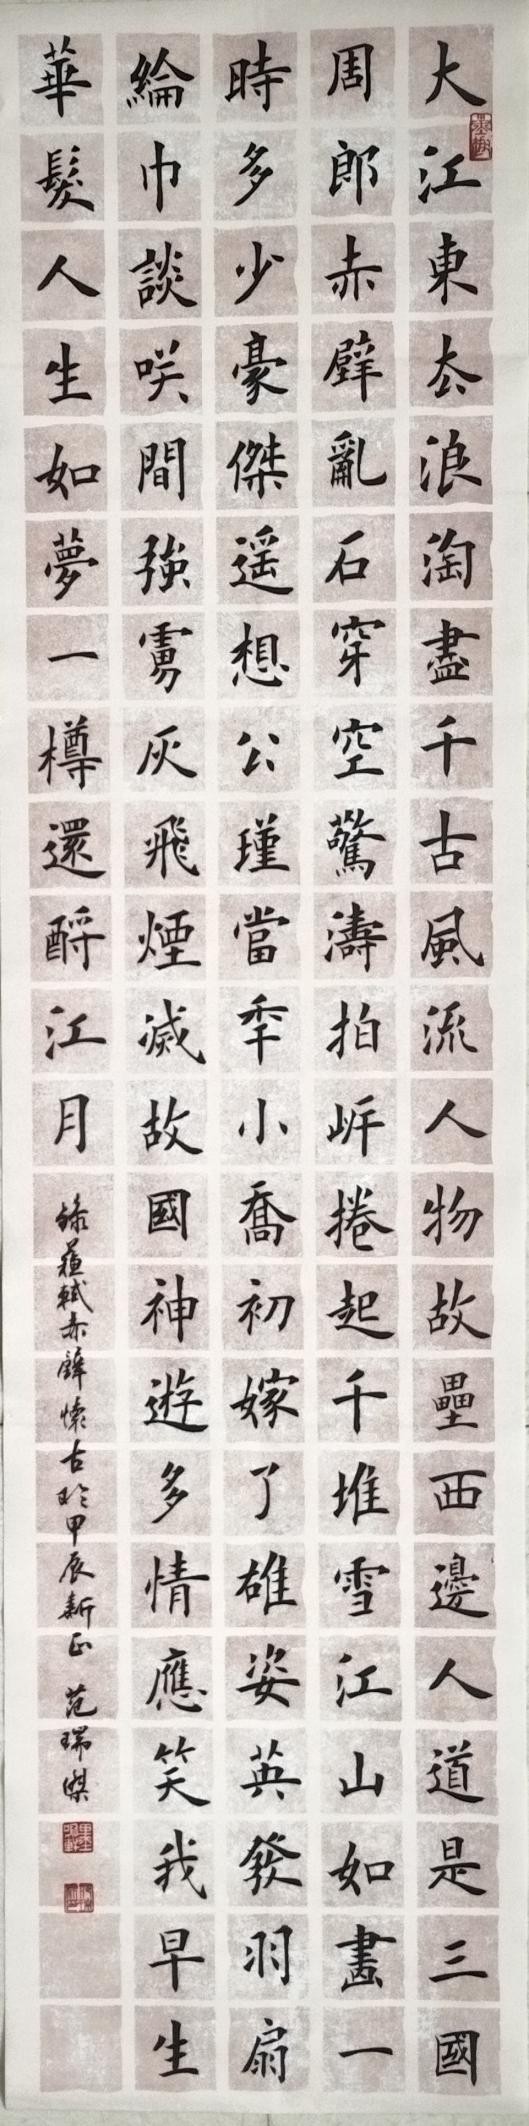 大江東去浪淘盡千古風流人物故壘西邊人道是三國
周郎赤壁亂石穿空驚濤拍岍捲起千堆雪江山如畫一
時多少豪傑遥想公瑾當秊小喬初嫁了雄姿英發羽扇
綸巾談咲間強虜灰飛煙滅故國神遊多情應笑我早生
華髮人生如夢一樽還酹江月
錄蘇軾赤壁懷古於甲辰新正 范瑞傑